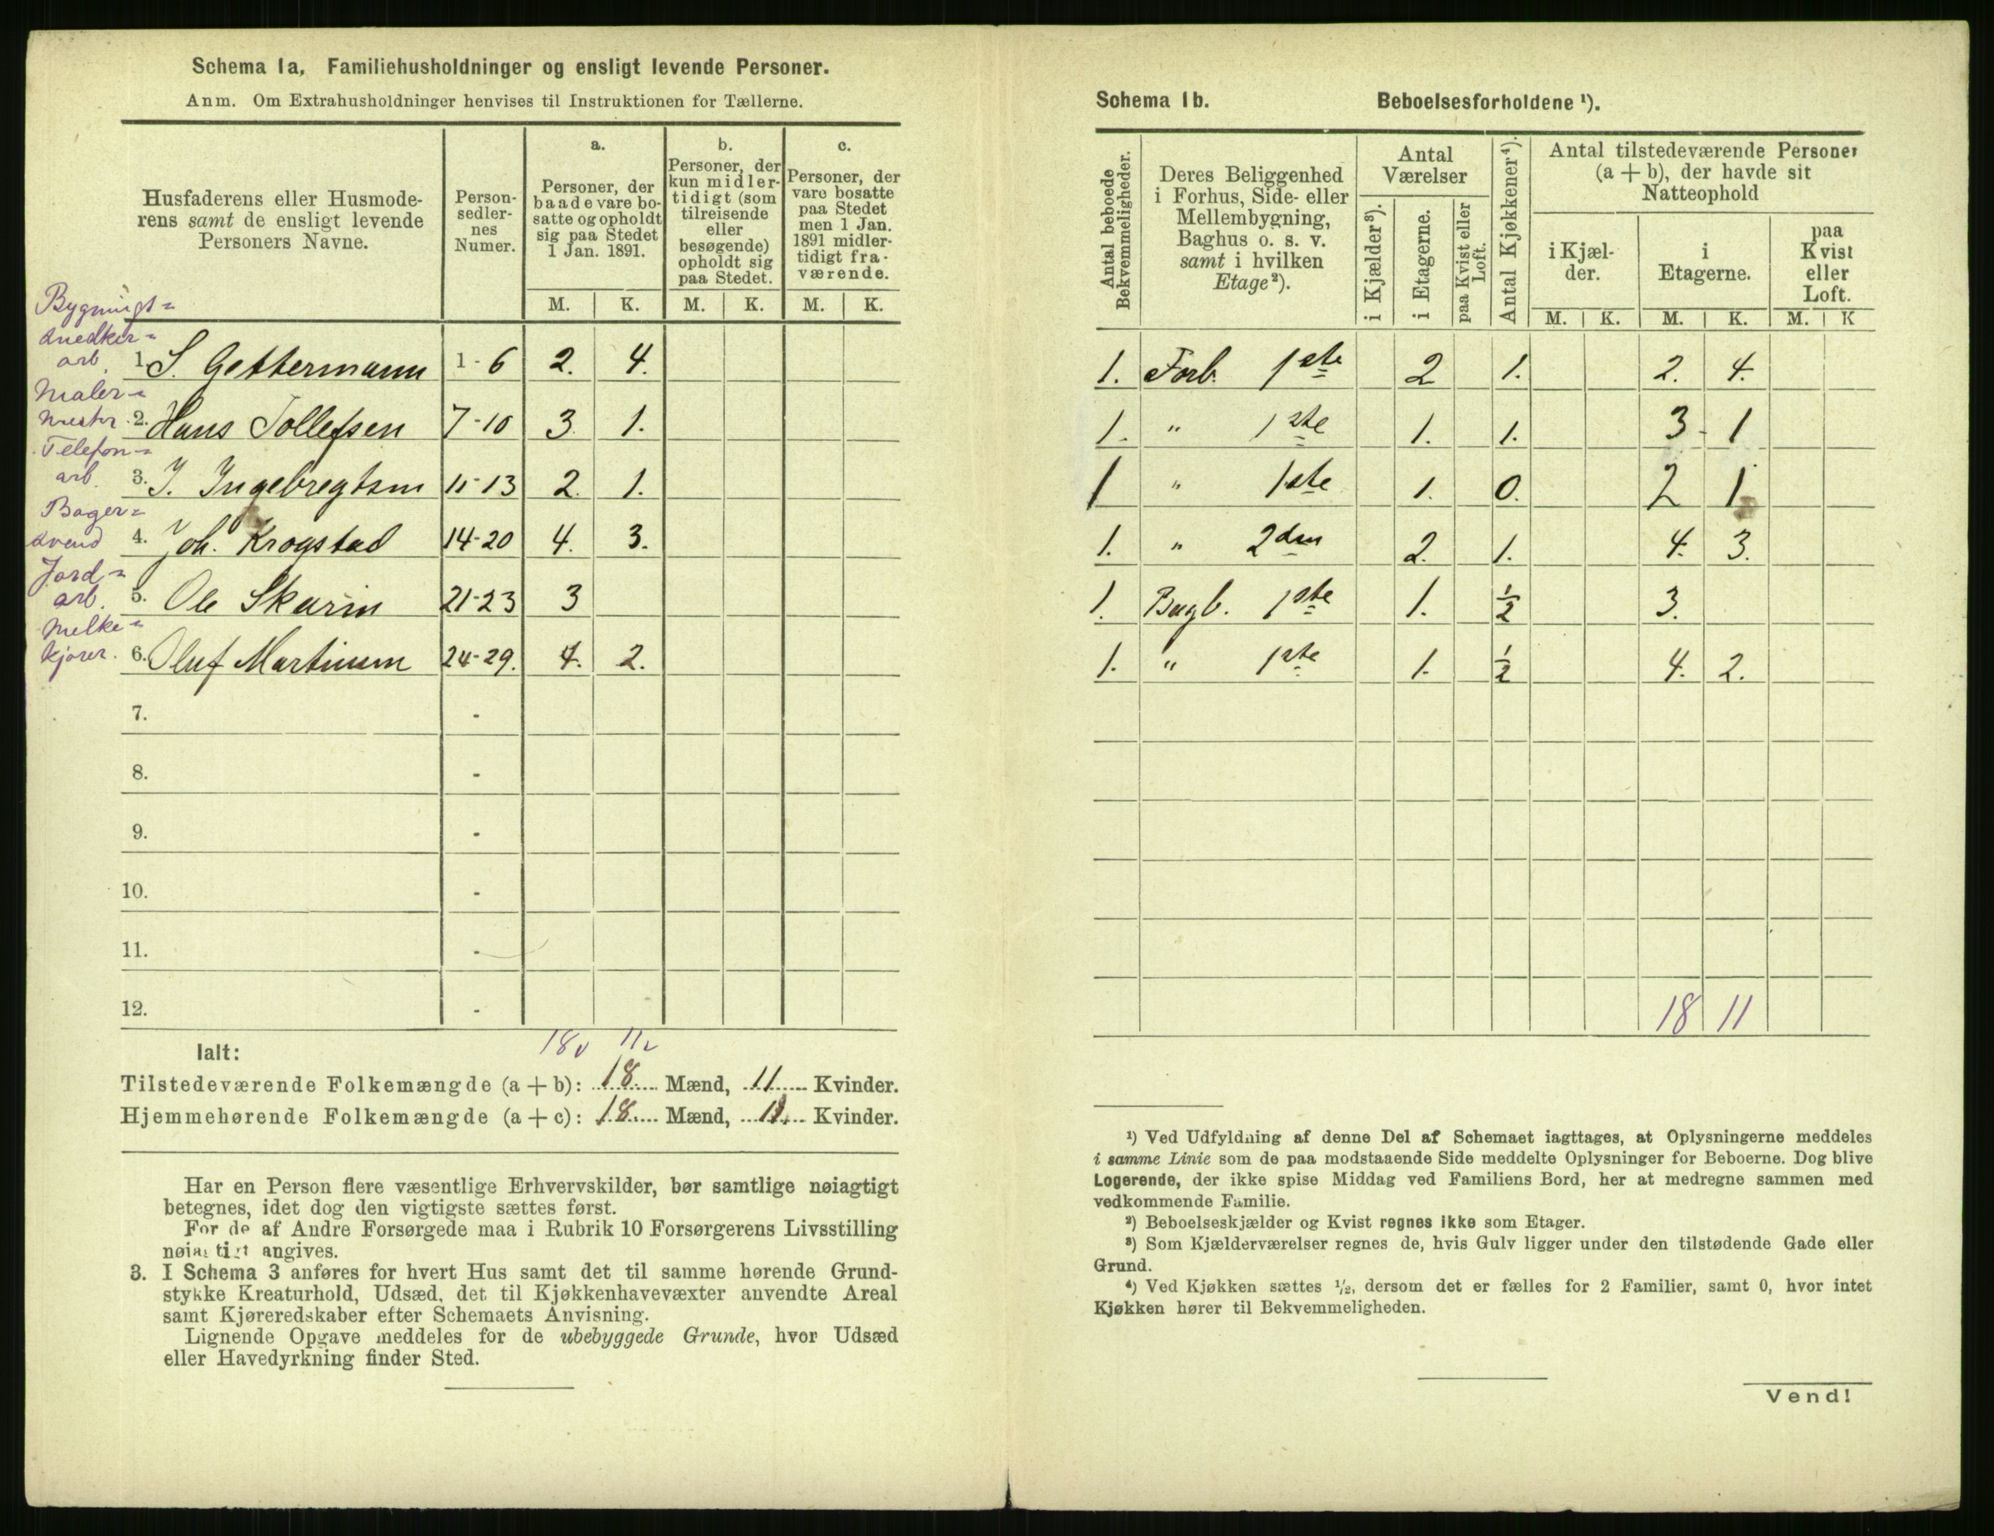 Schema 1a, Familiehusholdninger og ensligt levende Personer.
Anm. Om Extrahusholdninger henvises til Instruktionen for Tællerne.
Husfaderens eller Husmode-
rens samt de ensligt levende
Personers Navne.
Person-
sedler-
nes
Numer.
a.
Personer, der
baade vare bo-
satte og opholdt
sig paa Stedet
1 Jan. 1891.
b.
Personer, der
kun midler-
tidigt (som
tilreisende
eller
besøgende)
opholdt sig
paa Stedet.
c.
Personer, der
vare bosatte
paa Stedet
men 1 Jan.
1891 midler-
tidigt fra-
værende.
M. K. M. K. M. K.
Bygnings=
snedker=
arb. 1. S. Gettermann 1-6 2. 4.
Maler=
mester. 2. Hans Tollefsen 7-10 3. 1.
Telefon=
arb. 3. J. Ingebregtsen 11-13 2. 1.
Bager=
svend 4. Joh. Krogstad 14-20 4. 3.
Jord=
arb. 5. Ole Skarin 21-23 3
Melke=
kjører. 6. Oluf Martinsen 24-29. 4. 2.
7. -
8. -
9. -
10. -
11. -
12. -
18 11
Ialt:
Tilstedeværende Folkemængde (a + b): 18. Mænd, 11 Kvinder.
Hjemmehørende Folkemængde (a + c): 18. Mænd, 11. Kvinder.
Har en Person flere væsentlige Erhvervskilder, bør samtlige nøiagtigt
betegnes, idet dog den vigtigste sættes først.
For de af Andre Forsørgede maa i Rubrik 10 Forsørgerens Livsstilling
nøiagtigt angives.
3. I Schema 3 anføres for hvert Hus samt det til samme hørende Grund-
stykke Kreaturhold, Udsæd, det til Kjøkkenhavevæxter anvendte Areal
samt Kjøreredskaber efter Schemaets Anvisning.
Lignende Opgave meddeles for de ubebyggede Grunde, hvor Udsæd
eller Havedyrkning finder Sted.
Schema 1b. Beboelsesforholdene ¹).
Antal beboede
Bekvemmeligheder.
Deres Beliggenhed
i Forhus, Side- eller
Mellembygning,
Baghus o. s. v.
samt i hvilken
Etage²).
Antal
Værelser
i Kjælder³).
i Etagerne.
paa Kvist eller
Loft.
Antal Kjøkkener⁴).
Antal tilstedeværende Personer
(a + b), der havde sit
Natteophold
i Kjæl-
der.
i
Etagerne.
paa
Kvist
eller
Loft.
M. K. M. K. M. K
1. Forb. 1ste 2 1. 2. 4.
1. " 1ste 1. 1. 3 - 1
1 " 1ste 1. 0. 2 1
1. " 2den 2. 1. 4. 3.
1. Bagb. 1ste 1. ½ 3.
1. " 1ste 1. ½ 4. 2.
18 11
¹) Ved Udfyldning af denne Del af Schemaet iagttages, at Oplysningerne meddeles
i samme Linie som de paa modstaaende Side meddelte Oplysninger for Beboerne. Dog blive
Logerende, der ikke spise Middag ved Familiens Bord, her at medregne sammen med
vedkommende Familie.
²) Beboelseskjælder og Kvist regnes ikke som Etager.
³) Som Kjælderværelser regnes de, hvis Gulv ligger under den tilstødende Gade eller
Grund.
⁴) Ved Kjøkken sættes ½, dersom det er fælles for 2 Familier, samt 0, hvor intet
Kjøkken hører til Bekvemmeligheden.
Vend!